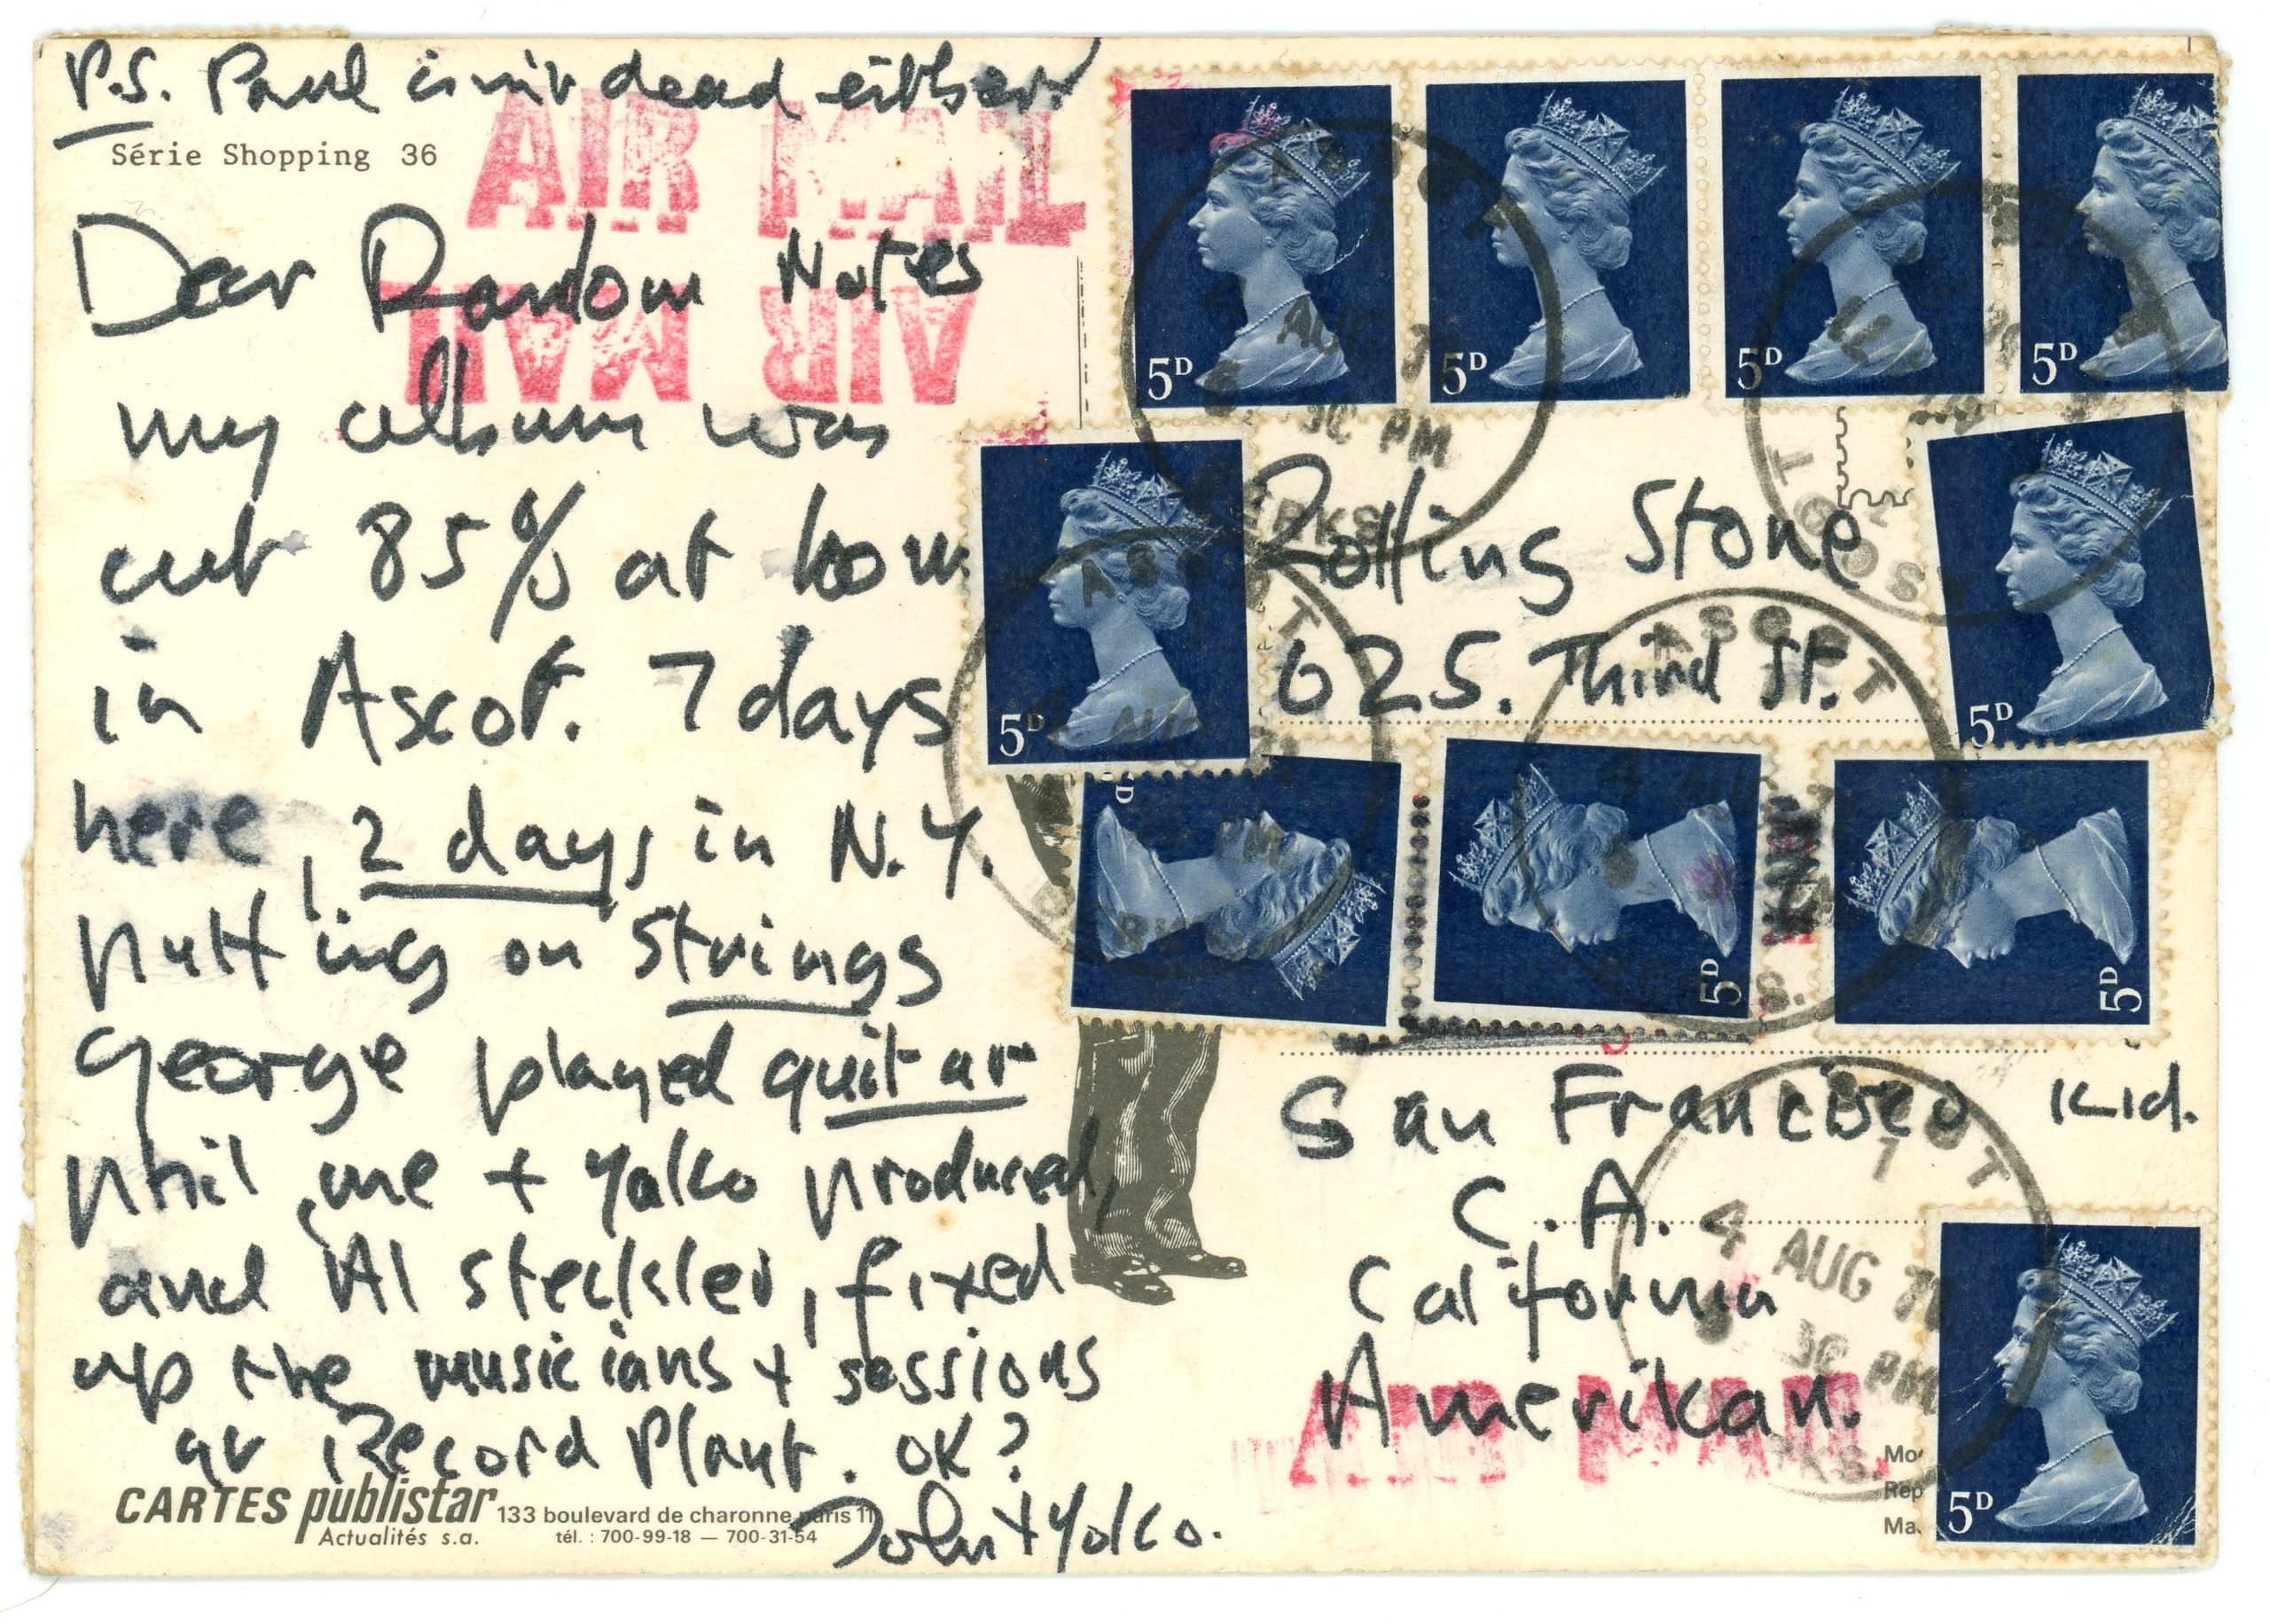 P.S. Paul isn't dead either.
Série Shopping 36
AIR MAIL
AIR MAIL
Dear Random Notes
my album was
cut 85% at home
in Ascot. 7 days
here, 2 days in N.Y.
putting on strings
George played guitar
Phil, me + Yoko produced,
and Al Steckler, fixed
up the musicians + sessions
at Record Plant. OK?
John + Yoko.
CARTES publistar
Actualités s.a.
133 boulevard de charonne paris 11
tél. : 700-99-18 — 700-31-54
5D
5D
5D
5D
ASCOT
AUG 71
30 PM
BERKS
5D
5D
Rolling Stone
625. Third St.
ASCOT
4 AUG 71
PM
BERKS
ASCOT
4 AUG 7
5D
5D
San Francisco Kid.
C.A.
California
Amerikan.
ASCOT
1
4 AUG 71
30 PM
RKS.
AIR MAIL
Mo
Rep
Ma
5D